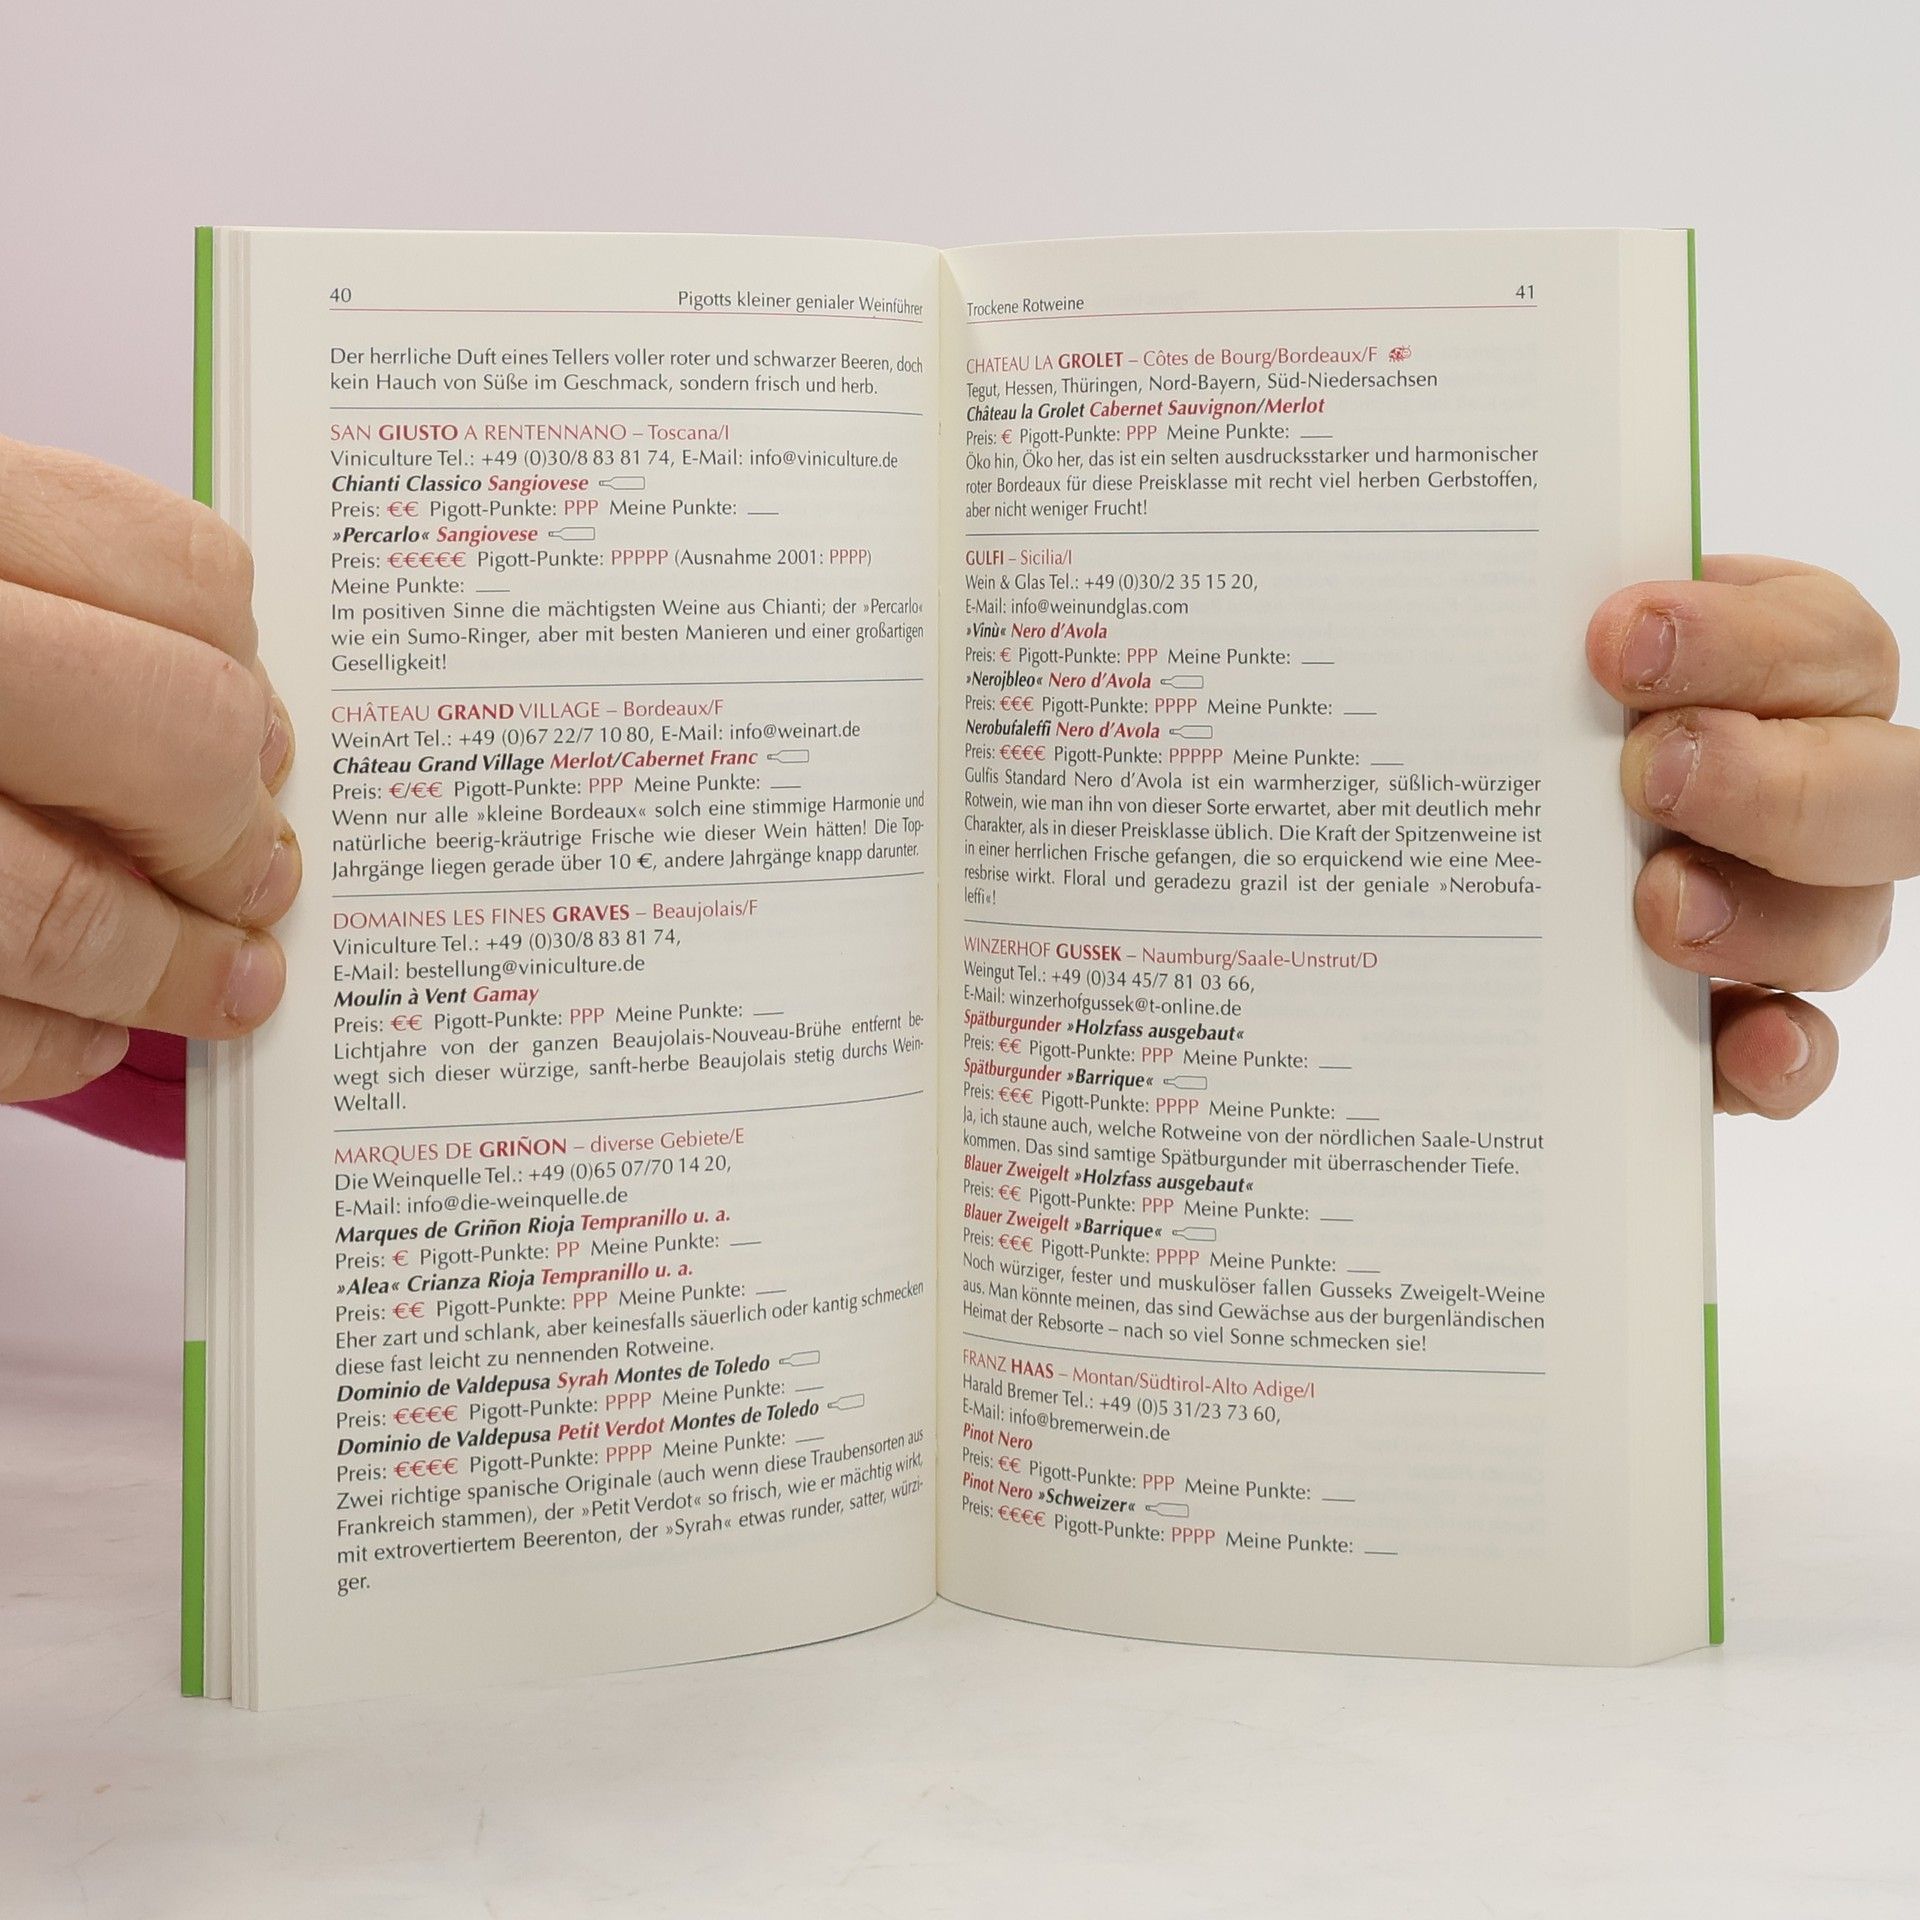 40
Pigotts kleiner genialer Weinführer
Der herrliche Duft eines Tellers voller roter und schwarzer Beeren, doch
kein Hauch von Süße im Geschmack, sondern frisch und herb.
SAN GIUSTO A RENTENNANO – Toscana/I
Viniculture Tel.: +49 (0)30/8 83 81 74, E-Mail: info@viniculture.de
Chianti Classico Sangiovese
Preis: €€ Pigott-Punkte: PPP Meine Punkte: __
»Percarlo« Sangiovese
Preis: €€€€€ Pigott-Punkte: PPPPP (Ausnahme 2001: PPPP)
Meine Punkte: __
Im positiven Sinne die mächtigsten Weine aus Chianti; der »Percarlo«
wie ein Sumo-Ringer, aber mit besten Manieren und einer großartigen
Geselligkeit!
CHÂTEAU GRAND VILLAGE – Bordeaux/F
WeinArt Tel.: +49 (0)67 22/7 10 80, E-Mail: info@weinart.de
Château Grand Village Merlot/Cabernet Franc
Preis: €/€€ Pigott-Punkte: PPP Meine Punkte: __
Wenn nur alle »kleine Bordeaux« solch eine stimmige Harmonie und
natürliche beerig-kräutrige Frische wie dieser Wein hätten! Die Top-
Jahrgänge liegen gerade über 10 €, andere Jahrgänge knapp darunter.
DOMAINES LES FINES GRAVES – Beaujolais/F
Viniculture Tel.: +49 (0)30/8 83 81 74,
E-Mail: bestellung@viniculture.de
Moulin à Vent Gamay
Preis: €€ Pigott-Punkte: PPP Meine Punkte: __
Lichtjahre von der ganzen Beaujolais-Nouveau-Brühe entfernt be-
wegt sich dieser würzige, sanft-herbe Beaujolais stetig durchs Wein-
Weltall.
MARQUES DE GRIÑON – diverse Gebiete/E
Die Weinquelle Tel.: +49 (0)65 07/70 14 20,
E-Mail: info@die-weinquelle.de
Marques de Griñon Rioja Tempranillo u. a.
Preis: € Pigott-Punkte: PP Meine Punkte: __
»Alea« Crianza Rioja Tempranillo u. a.
Preis: €€ Pigott-Punkte: PPP Meine Punkte: __
Eher zart und schlank, aber keinesfalls säuerlich oder kantig schmecken
diese fast leicht zu nennenden Rotweine.
Dominio de Valdepusa Syrah Montes de Toledo
Preis: €€€€ Pigott-Punkte: PPPP Meine Punkte: __
Dominio de Valdepusa Petit Verdot Montes de Toledo
Preis: €€€€ Pigott-Punkte: PPPP Meine Punkte: __
Zwei richtige spanische Originale (auch wenn diese Traubensorten aus
Frankreich stammen), der »Petit Verdot« so frisch, wie er mächtig wirkt,
mit extrovertiertem Beerenton, der »Syrah« etwas runder, satter, würzi-
ger.
Trockene Rotweine
41
CHATEAU LA GROLET – Côtes de Bourg/Bordeaux/F
Tegut, Hessen, Thüringen, Nord-Bayern, Süd-Niedersachsen
Château la Grolet Cabernet Sauvignon/Merlot
Preis: € Pigott-Punkte: PPP Meine Punkte: __
Öko hin, Öko her, das ist ein selten ausdrucksstarker und harmonischer
roter Bordeaux für diese Preisklasse mit recht viel herben Gerbstoffen,
aber nicht weniger Frucht!
GULFI – Sicilia/I
Wein & Glas Tel.: +49 (0)30/2 35 15 20,
E-Mail: info@weinundglas.com
»Vinù« Nero d'Avola
Preis: € Pigott-Punkte: PPP Meine Punkte: __
»Nerojbleo« Nero d'Avola
Preis: €€€ Pigott-Punkte: PPPP Meine Punkte: __
Nerobufaleffi Nero d'Avola
Preis: €€€€ Pigott-Punkte: PPPPP Meine Punkte: __
Gulfis Standard Nero d'Avola ist ein warmherziger, süßlich-würziger
Rotwein, wie man ihn von dieser Sorte erwartet, aber mit deutlich mehr
Charakter, als in dieser Preisklasse üblich. Die Kraft der Spitzenweine ist
in einer herrlichen Frische gefangen, die so erquickend wie eine Mee-
resbrise wirkt. Floral und geradezu grazil ist der geniale »Nerobufa-
leffi«!
WINZERHOF GUSSEK – Naumburg/Saale-Unstrut/D
Weingut Tel.: +49 (0)34 45/7 81 03 66,
E-Mail: winzerhofgussek@t-online.de
Spätburgunder »Holzfass ausgebaut«
Preis: €€ Pigott-Punkte: PPP Meine Punkte: __
Spätburgunder »Barrique«
Preis: €€€ Pigott-Punkte: PPPP Meine Punkte: __
Ja, ich staune auch, welche Rotweine von der nördlichen Saale-Unstrut
kommen. Das sind samtige Spätburgunder mit überraschender Tiefe.
Blauer Zweigelt »Holzfass ausgebaut«
Preis: €€ Pigott-Punkte: PPP Meine Punkte: __
Blauer Zweigelt »Barrique«
Preis: €€€ Pigott-Punkte: PPPP Meine Punkte: __
Noch würziger, fester und muskulöser fallen Gusseks Zweigelt-Weine
aus. Man könnte meinen, das sind Gewächse aus der burgenländischen
Heimat der Rebsorte – nach so viel Sonne schmecken sie!
FRANZ HAAS – Montan/Südtirol-Alto Adige/I
Harald Bremer Tel.: +49 (0)5 31/23 73 60,
E-Mail: info@bremerwein.de
Pinot Nero
Preis: €€ Pigott-Punkte: PPP Meine Punkte: __
Pinot Nero »Schweizer«
Preis: €€€€ Pigott-Punkte: PPPP Meine Punkte: __